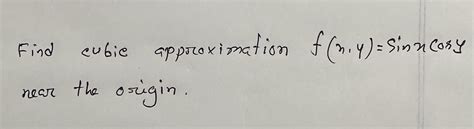 Find cubic approximation f(x,y)=Sinx Cosy
near the origin.